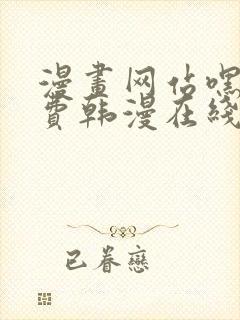 漫畫网站嘿
費韩漫在线
已眷戀